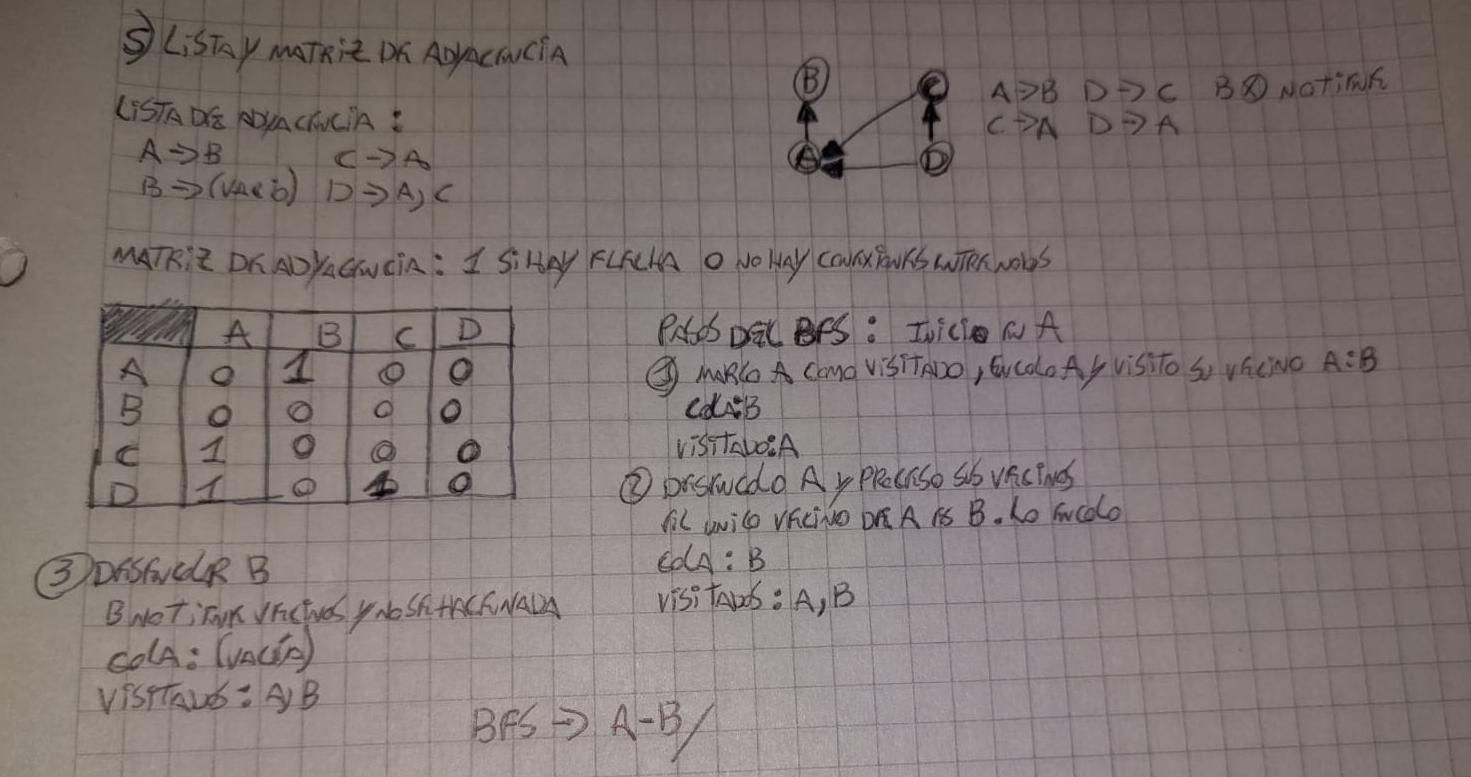 5) LISTA Y MATRIZ DE ADYACENCIA
LISTA DE ADYACENCIA:
A → B C → A
B → (VACIO) D → A, C
B C
A D
A → B D → C B NO TIENE
C → A D → A
MATRIZ DE ADYACENCIA: 1 SI HAY FLECHA 0 NO HAY CONEXIONES ENTRE NODOS
A B C D
A 0 1 0 0
B 0 0 0 0
C 1 0 0 0
D 1 0 1 0
PASOS DEL BFS: INICIO EN A
① MARCO A COMO VISITADO, ENCOLO A Y VISITO SU VECINO A:B
COLA:B
VISITADO:A
② DESENCOLO A Y PROCESO SUS VECINOS
EL UNICO VECINO DE A ES B. LO ENCOLO
COLA: B
VISITADOS: A, B
③ DESENCOLAR B
B NO TIENE VECINOS Y NO SE HACE NADA
COLA: (VACÍA)
VISITADOS: A, B
BFS → A-B/